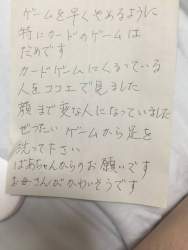 ゲームを早くやめるように
特にカードのゲームは
だめです
カードゲームにくるっている
人をココエで見ました
顔まで変な人になっていました
ぜったいゲームから足を
洗って下さい
ばあちゃんからのお願いです
お母さんがかわいそうです